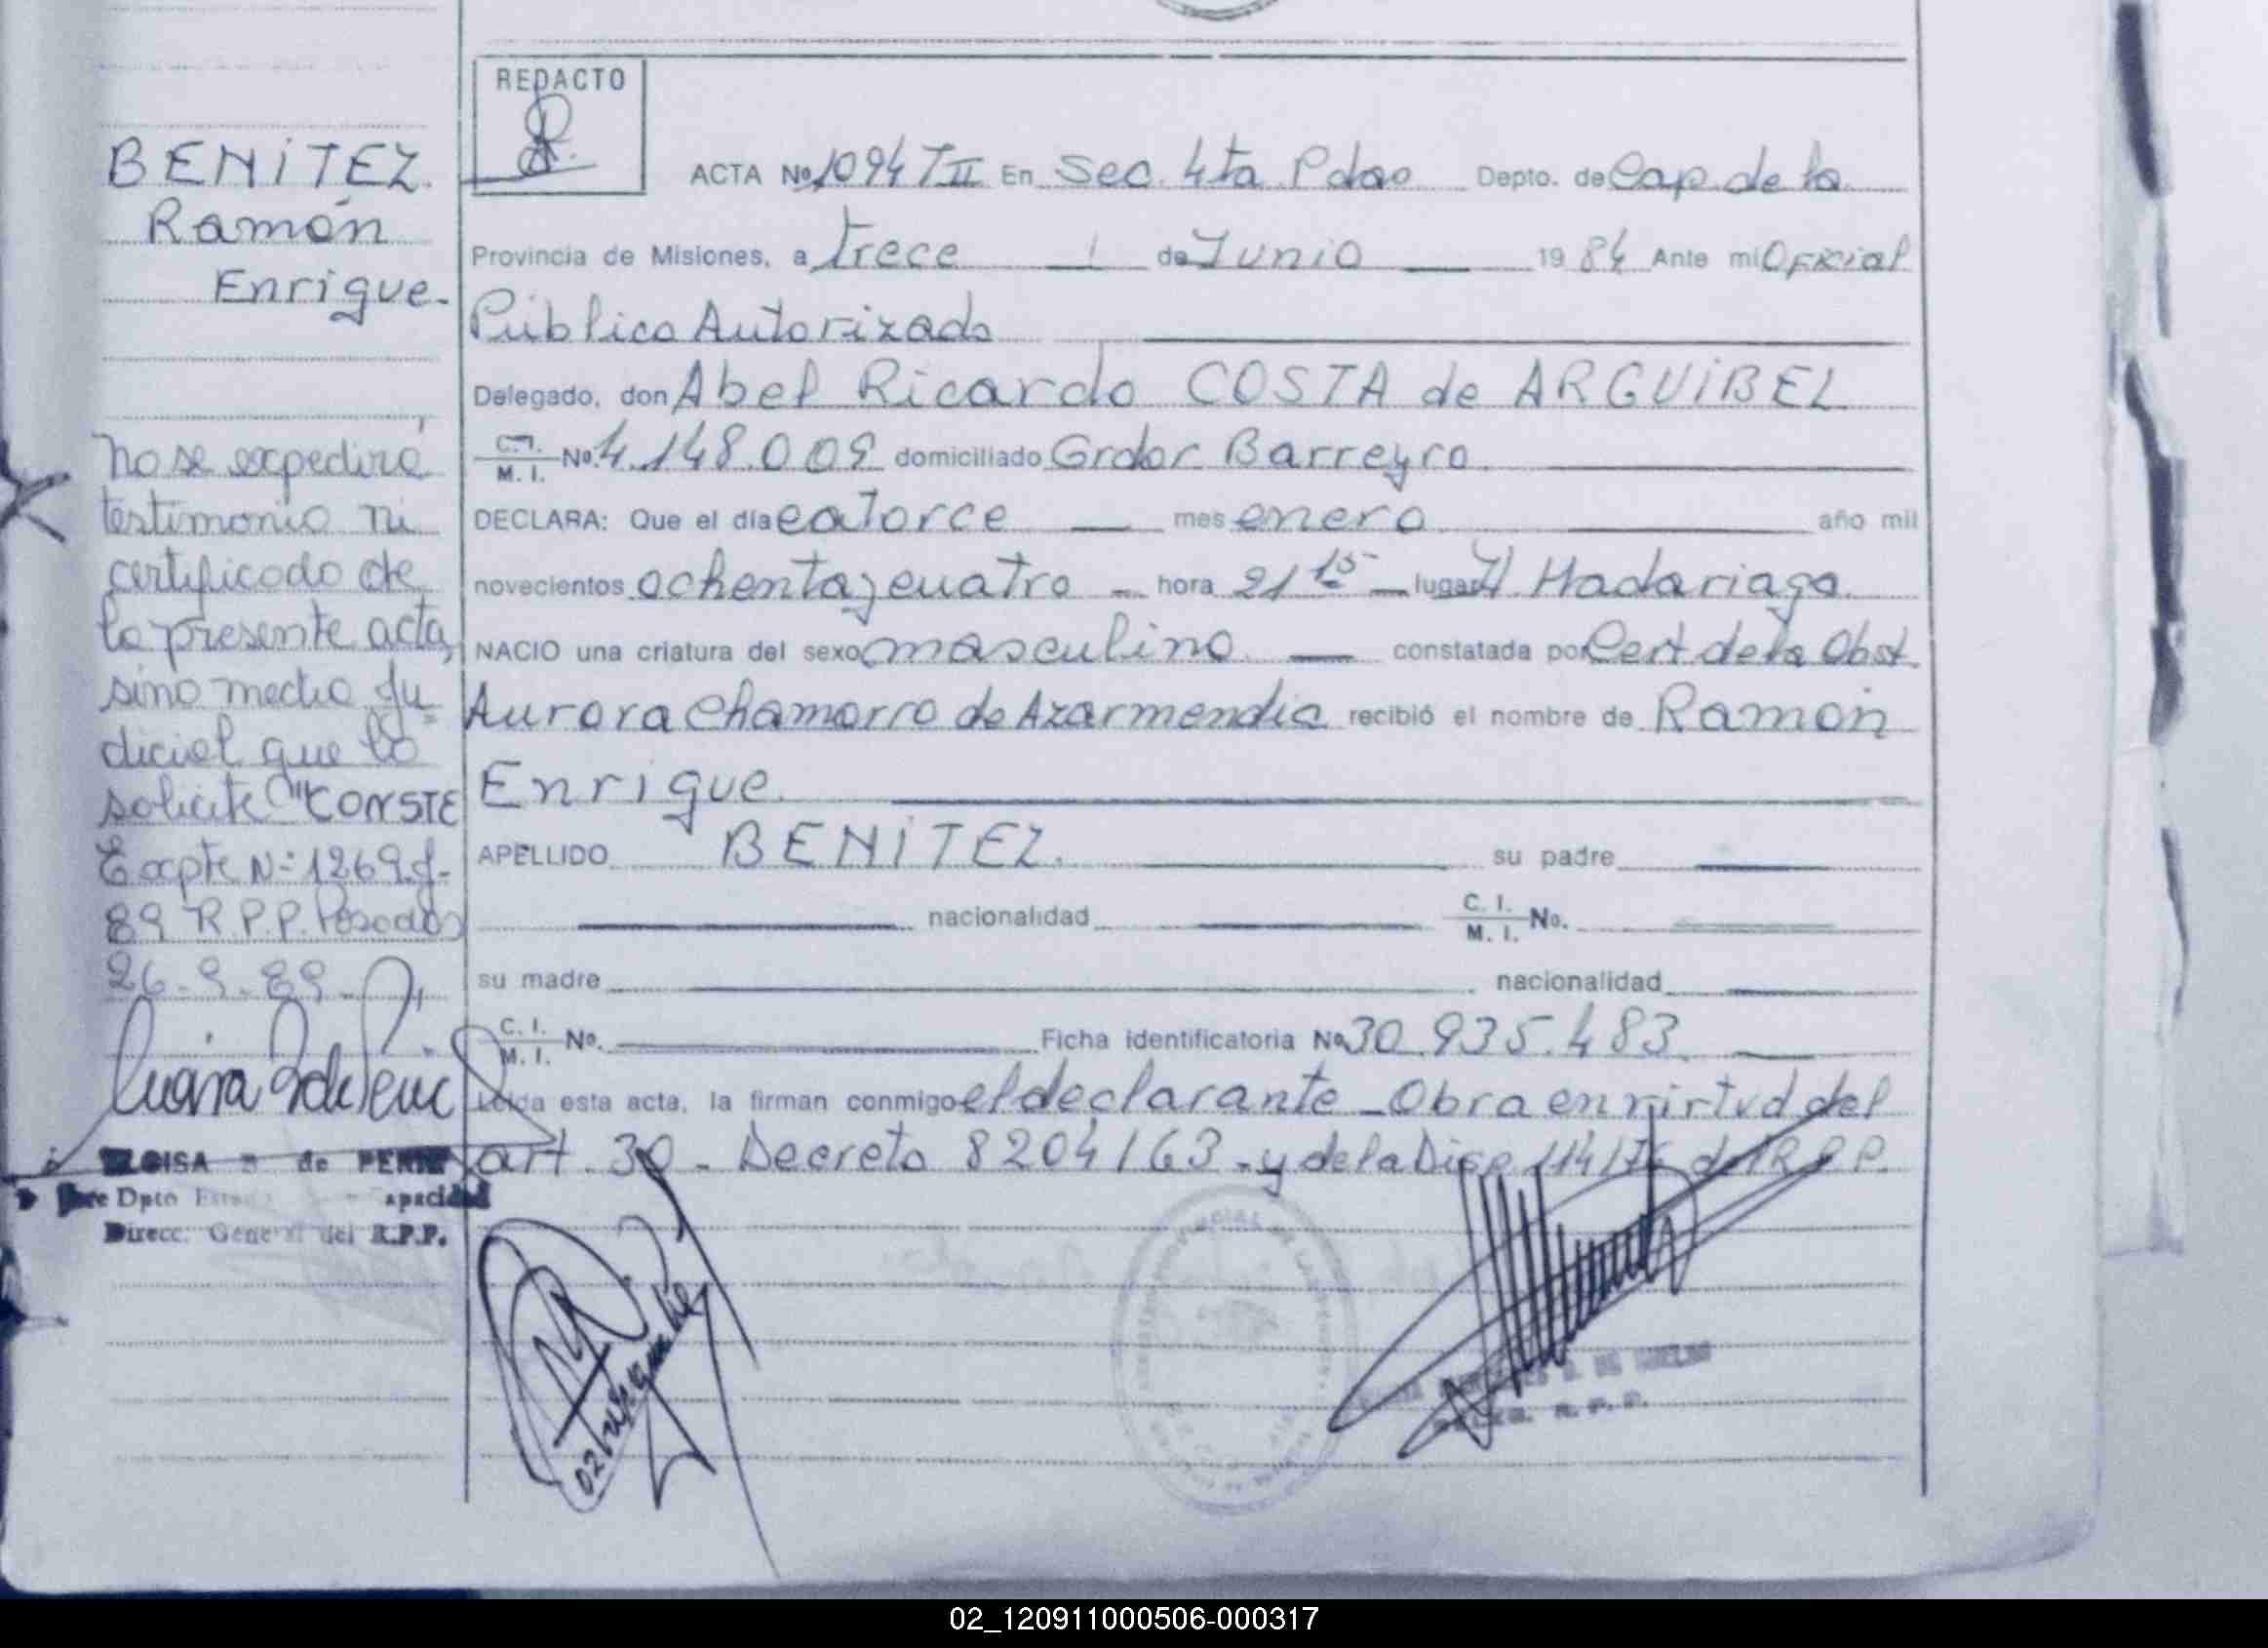 BENÍTEZ.
Ramón
Enrique.
No se expedirá
testimonio ni
certificado de
la presente acta,
sino medio Ju
dicial que lo
solicite "CONSTE
Expte N-: 1269.J-
89 R P.P. Posadas
26-9-89-
ELOISA de
Jefe Dpto Capacidad
Direcc: General del R.P.P.
REDACTO
ACTA No. 1094 T II En Sec. 4ta Pdas Depto. de Cap. de la
Provincia de Misiones, a trece de Junio 19 84 Ante mi Oficial
Público Autorizado
Delegado, don Abel Ricardo COSTA de ARGUIBEL
C.I. M. I. No. 4.148.009 domiciliado Grdor Barreyro.
DECLARA: Que el día catorce mes enero año mil
novecientos ochenta y cuatro - hora 21 15 - lugar H. Madariaga.
NACIO una criatura del sexo masculino. constatada por Cert de la Obst.
Aurora Chamorro de Azarmendia recibió el nombre de Ramón
Enrique.
APELLIDO BENÍTEZ. su padre
nacionalidad C. I. M. I. No.
su madre nacionalidad
C. I. M. I. No. Ficha identificatoria No. 30.935.483.
Leída esta acta, la firman conmigo el declarante - Obra en virtud del
art. 30 - Decreto 8204/63 - y de la Disp. 114/76 del R.P.P.
02_120911000506-000317